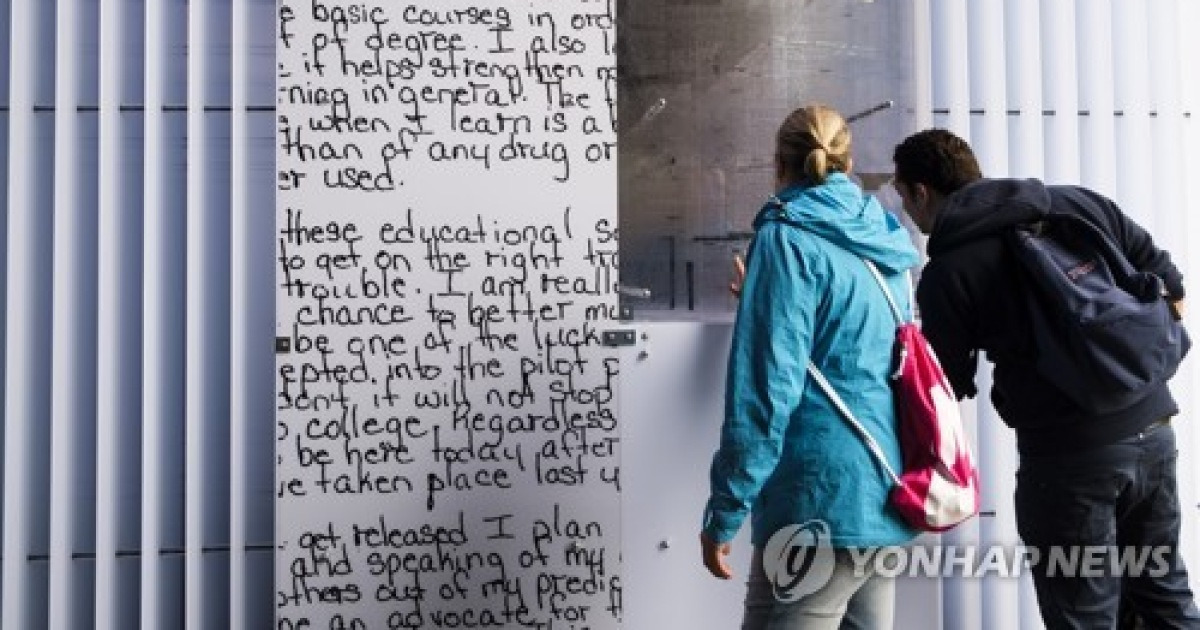 e basic courses in ord
of degree. I also l
e it helps strengthen m
rning in general. The f
g when I learn is a b
than of any drug or
er used.
these educational s
to get on the right tra
trouble. I am reall
chance to better my
be one of the luck
epted into the pilot p
don't, it will not stop
o college. Regardless
be here today after
ve taken place last y
get released I plan
and speaking of my
others out of my predic
be an advocate for t
YONHAP NEWS